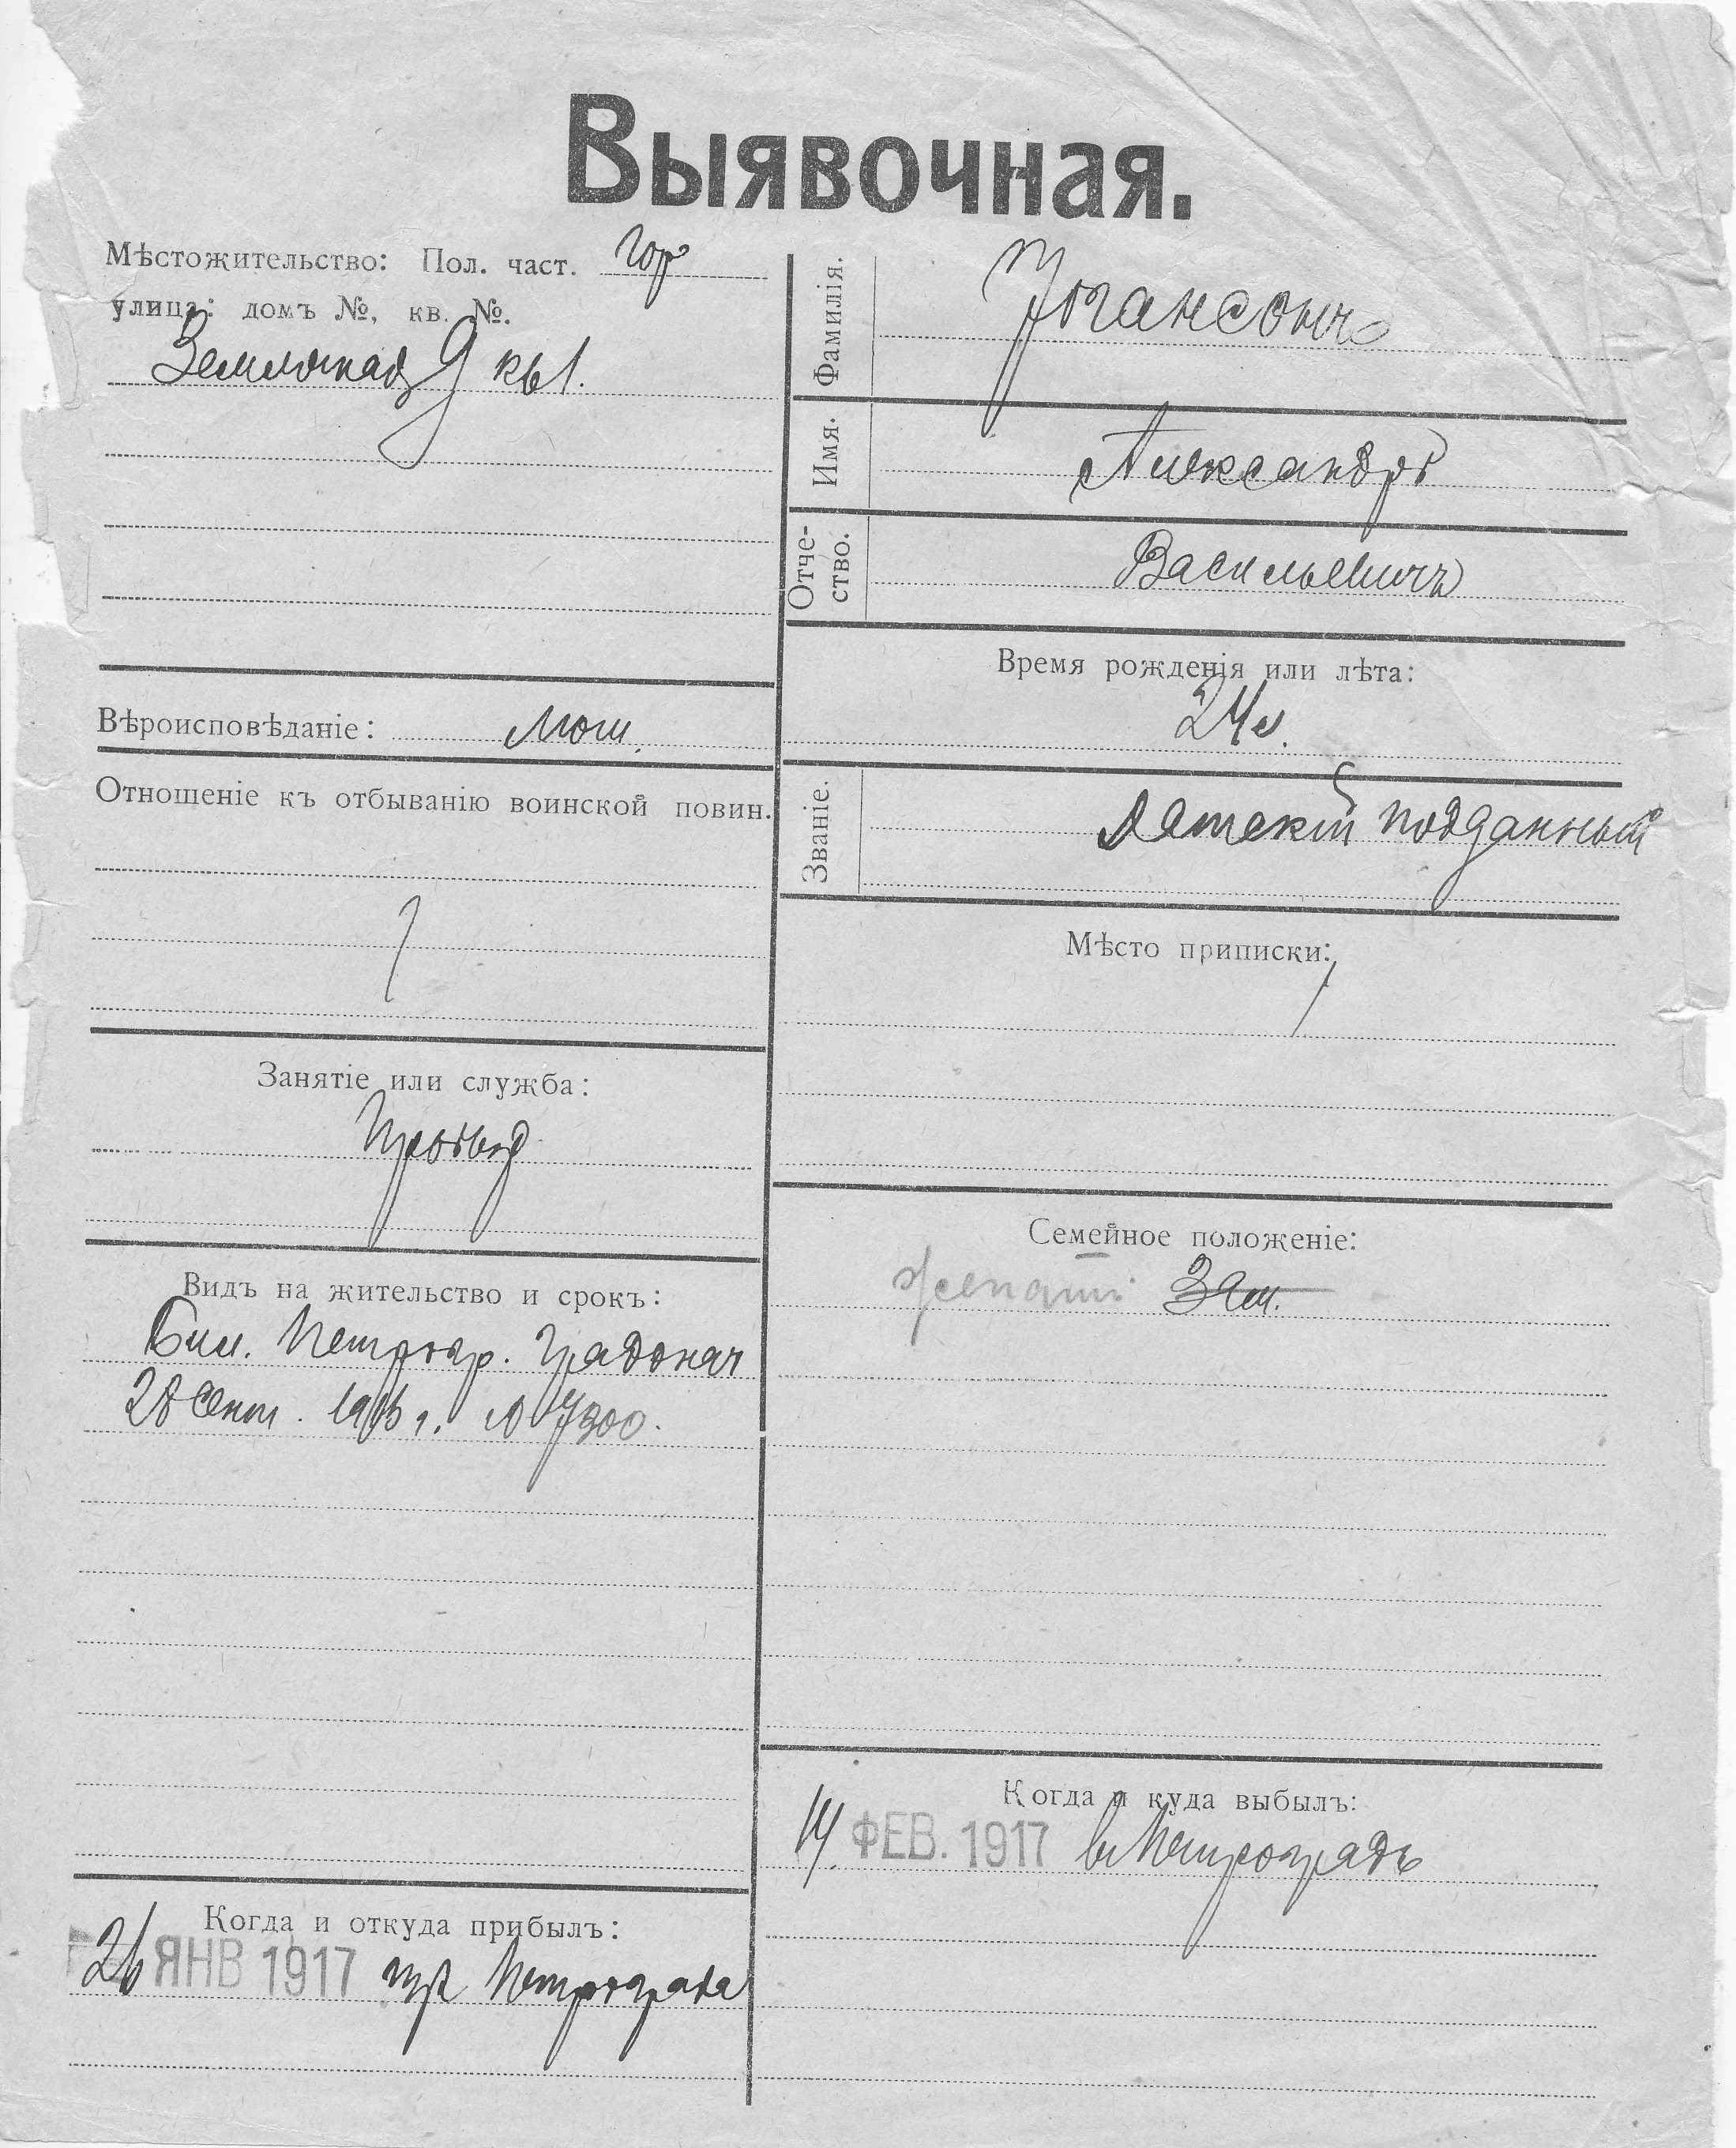 Выявочная.
Мѣстожительство: Пол. част. Гор
улица: домъ №, кв. №.
9 кв 1.
Вѣроисповѣданіе: Лют.
Отношеніе къ отбыванію воинской повин.
Занятіе или служба:
Видъ на жительство и срокъ:
Бил. Петрогр. Градонач
28 Сент. г. №
Когда и откуда прибылъ:
26 ЯНВ 1917 изъ Петрограда
Фамилія. Іогансонъ
Имя. Александръ
Отче-
ство. Васильевичъ
Время рожденія или лѣта:
24 л.
Званіе. Датскій подданный
Мѣсто приписки:
Семейное положеніе:
женатъ
Когда и куда выбылъ:
14 ФЕВ. 1917 въ Петроградъ